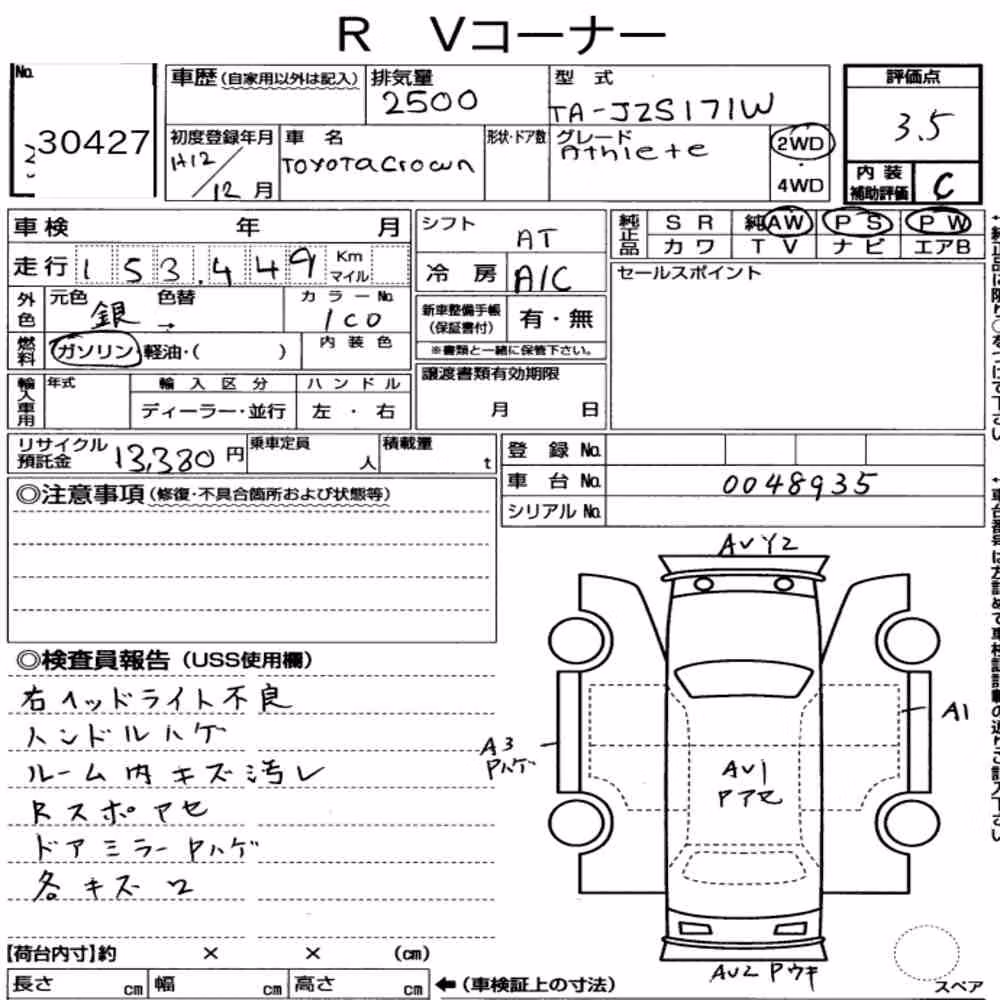 R Vコーナー
No. 30427
車歴(自家用以外は記入)
排気量 2500
型式 TA-JZS171W
評価点 3.5
初度登録年月 H12/12月
車名 TOYOTA Crown
形状・ドア数
グレード Athlete
2WD
4WD
内装補助評価 C
車検 年 月
シフト AT
純正品 SR 純AW PS PW
カワ TV ナビ エアB
走行 153,449 Km マイル
冷房 A/C
セールスポイント
外色 元色 銀 → 色替 カラーNo. 1C0
新車整備手帳(保証書付) 有・無
※書類と一緒に保管下さい。
燃料 ガソリン・軽油・( ) 内装色
譲渡書類有効期限
月 日
輸入車用 年式 輸入区分 ハンドル
ディーラー・並行 左・右
リサイクル預託金 13,380円 乗車定員 人 積載量 t
登録No.
車台No. 0048935
シリアルNo.
◎注意事項(修復・不具合箇所および状態等)
◎検査員報告(USS使用欄)
右ヘッドライト不良
ハンドルハゲ
ルーム内キズ汚レ
Rスポアセ
ドアミラーPハゲ
各キズ凹
AUY2
A1
A3
Pハゲ
AU1
Pアセ
AU2 Pウキ
スペア
【荷台内寸】約 × × (cm)
長さ cm 幅 cm 高さ cm ←(車検証上の寸法)